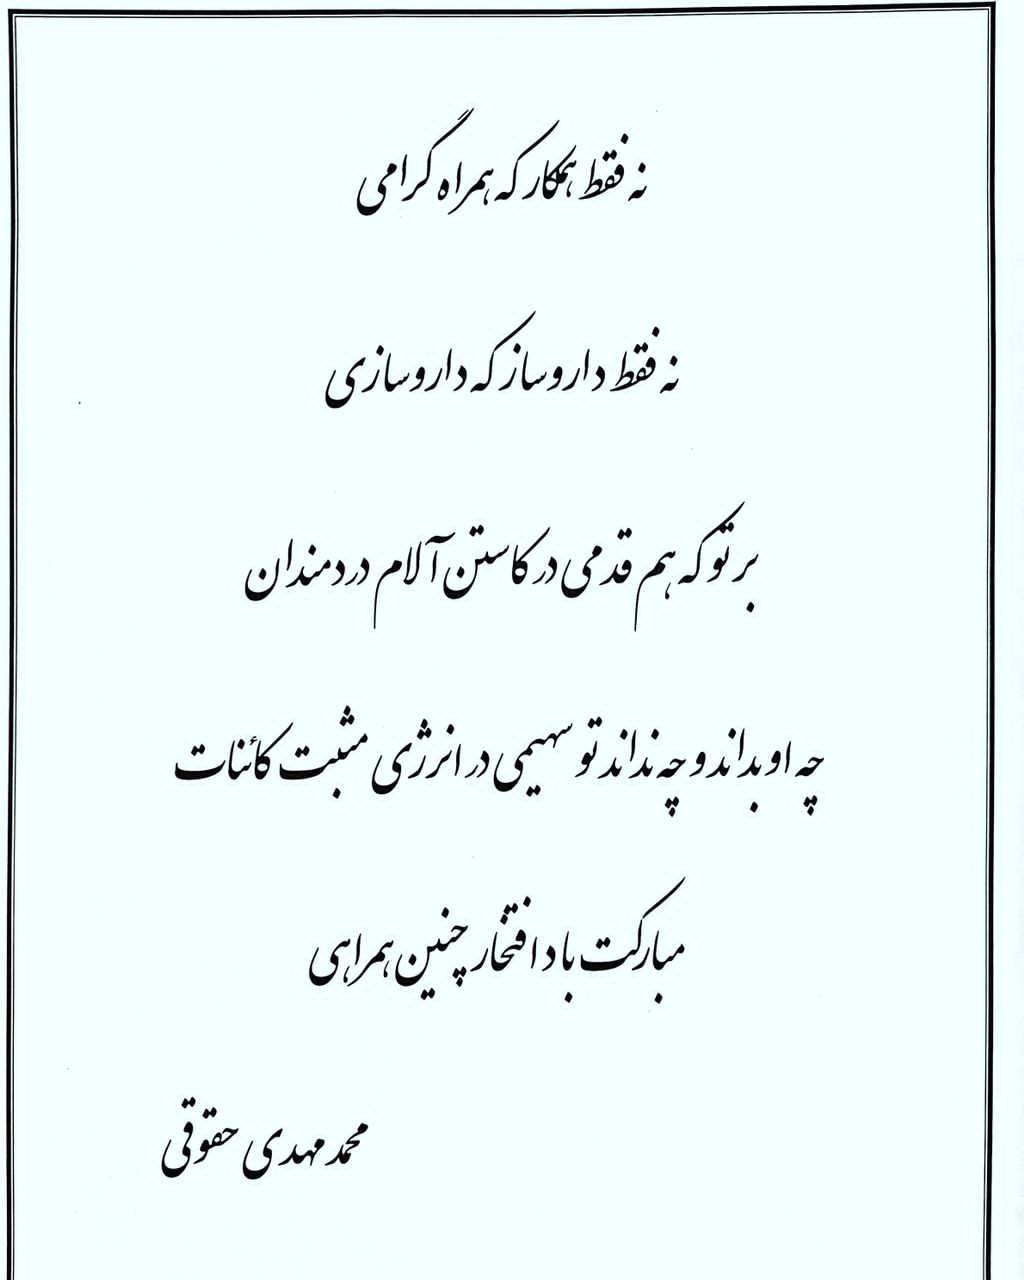 نه فقط همکار که همراه گرامی
نه فقط داروساز که داروسازی
بر تو که هم قدمی در کاستن آلام دردمندان
چه او بداند و چه نداند تو سهیمی در انرژی مثبت کائنات
مبارکت باد افتخار چنین همراهی
محمد مهدی حقوقی